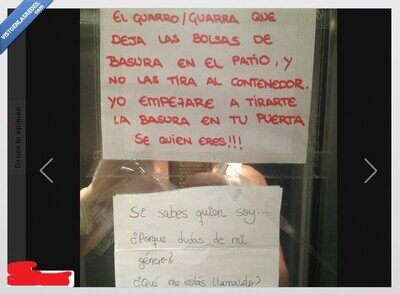 VISTOENLASREDES.com
EL GUARRO/GUARRA QUE
DEJA LAS BOLSAS DE
BASURA EN EL PATIO, Y
NO LAS TIRA AL CONTENEDOR.
YO EMPEZARE A TIRARTE
LA BASURA EN TU PUERTA
SE QUIEN ERES!!!
Danos tu opinión
Si sabes quien soy...
¿Porque dudas de mi
genero?
¿Qué me estás llamando?